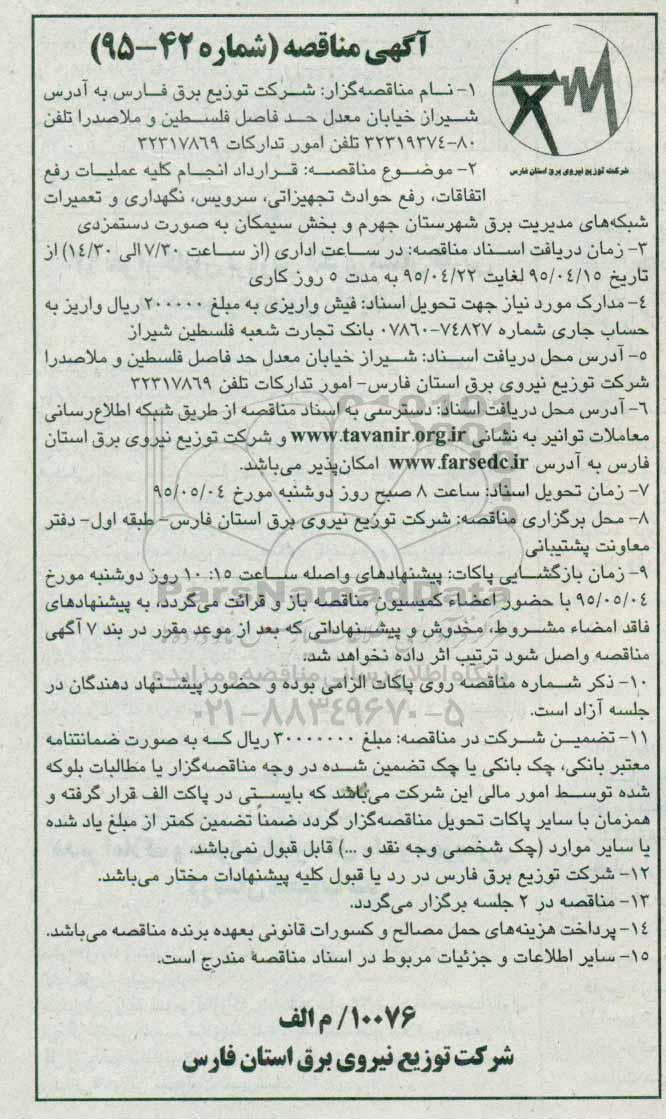 آگهی مناقصه (شماره ۴۲-۹۵)
شرکت توزیع نیروی برق استان فارس
۱- نام مناقصه‌گزار: شرکت توزیع برق فارس به آدرس
شیراز خیابان معدل حد فاصل فلسطین و ملاصدرا تلفن
۸۰-۳۲۳۱۹۳۷۴ تلفن امور تدارکات ۳۲۳۱۷۸۶۹
۲- موضوع مناقصه: قرارداد انجام کلیه عملیات رفع
اتفاقات، رفع حوادث تجهیزاتی، سرویس، نگهداری و تعمیرات
شبکه‌های مدیریت برق شهرستان جهرم و بخش سیمکان به صورت دستمزدی
۳- زمان دریافت اسناد مناقصه: در ساعت اداری (از ساعت ۷/۳۰ الی ۱۴/۳۰) از
تاریخ ۹۵/۰۴/۱۵ لغایت ۹۵/۰۴/۲۲ به مدت ۵ روز کاری
۴- مدارک مورد نیاز جهت تحویل اسناد: فیش واریزی به مبلغ ۲۰۰۰۰۰ ریال واریز به
حساب جاری شماره ۷۴۸۲۷-۰۷۸۶۰ بانک تجارت شعبه فلسطین شیراز
۵- آدرس محل دریافت اسناد: شیراز خیابان معدل حد فاصل فلسطین و ملاصدرا
شرکت توزیع نیروی برق استان فارس- امور تدارکات تلفن ۳۲۳۱۷۸۶۹
۶- آدرس محل دریافت اسناد: دسترسی به اسناد مناقصه از طریق شبکه اطلاع‌رسانی
معاملات توانیر به نشانی www.tavanir.org.ir و شرکت توزیع نیروی برق استان
فارس به آدرس www.farsedc.ir امکان‌پذیر می‌باشد.
۷- زمان تحویل اسناد: ساعت ۸ صبح روز دوشنبه مورخ ۹۵/۰۵/۰۴
۸- محل برگزاری مناقصه: شرکت توزیع نیروی برق استان فارس- طبقه اول- دفتر
معاونت پشتیبانی
۹- زمان بازگشایی پاکات: پیشنهادهای واصله ساعت ۱۵: ۱۰ روز دوشنبه مورخ
۹۵/۰۵/۰۴ با حضور اعضاء کمیسیون مناقصه باز و قرائت می‌گردد، به پیشنهادهای
فاقد امضاء مشروط، مخدوش و پیشنهاداتی که بعد از موعد مقرر در بند ۷ آگهی
مناقصه واصل شود ترتیب اثر داده نخواهد شد.
۱۰- ذکر شماره مناقصه روی پاکات الزامی بوده و حضور پیشنهاد دهندگان در
جلسه آزاد است.
۱۱- تضمین شرکت در مناقصه: مبلغ ۳۰۰۰۰۰۰۰ ریال که به صورت ضمانتنامه
معتبر بانکی، چک بانکی یا چک تضمین شده در وجه مناقصه‌گزار یا مطالبات بلوکه
شده توسط امور مالی این شرکت می‌باشد که بایستی در پاکت الف قرار گرفته و
همزمان با سایر پاکات تحویل مناقصه‌گزار گردد ضمناً تضمین کمتر از مبلغ یاد شده
یا سایر موارد (چک شخصی وجه نقد و ...) قابل قبول نمی‌باشد.
۱۲- شرکت توزیع برق فارس در رد یا قبول کلیه پیشنهادات مختار می‌باشد.
۱۳- مناقصه در ۲ جلسه برگزار می‌گردد.
۱۴- پرداخت هزینه‌های حمل مصالح و کسورات قانونی بعهده برنده مناقصه می‌باشد.
۱۵- سایر اطلاعات و جزئیات مربوط در اسناد مناقصه مندرج است.
۱۰۰۷۶/ م الف
شرکت توزیع نیروی برق استان فارس
ParsNamadData
۰۲۱-۸۸۳۴۹۶۷۰-۵